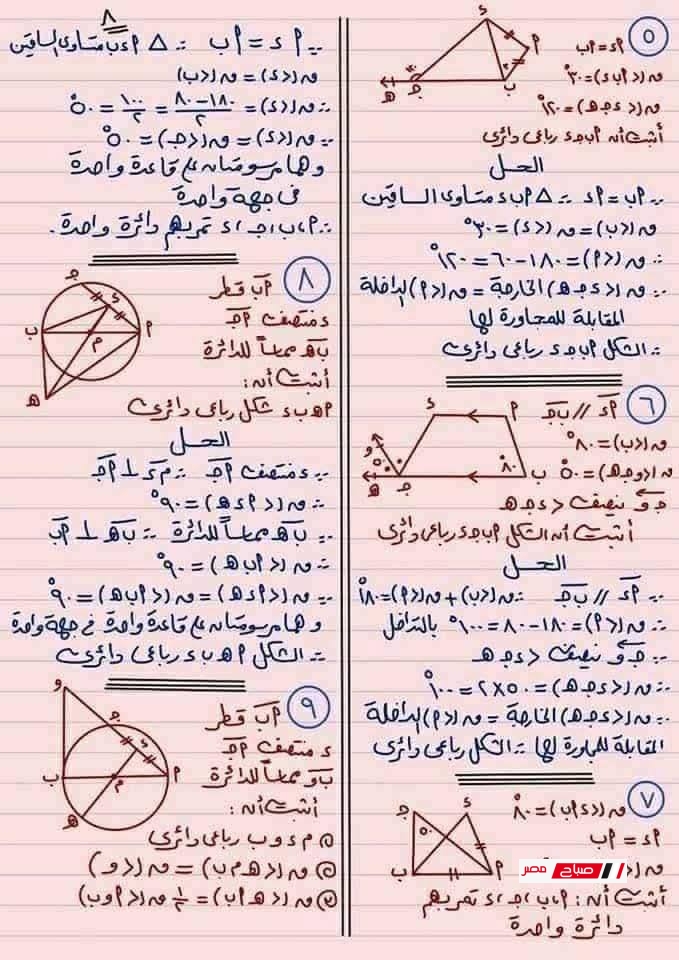 ٥
أ ء = أ ب
ق(د أ ب ء) = ٣٠°
ق(د ء ج هـ) = ١٢٠°
أثبت أنه أ ب ج ء رباعى دائرى
الحل
∵ أ ب = أ ء ∴ △ أ ب ء متساوى الساقين
ق(د ب) = ق(د ء) = ٣٠°
∴ ق(د أ) = ١٨٠ - ٦٠ = ١٢٠°
∵ ق(د ء ج هـ) الخارجة = ق(د أ) الداخلة
المقابلة للمجاورة لها
∴ الشكل أ ب ج ء رباعى دائرى
٦
أ ء // ب ج
ق(د ب) = ٨٠°
ق(د و ج هـ) = ٥٠°
ج و ينصف < ء ج هـ
أثبت أنه الشكل أ ب ج ء رباعى دائرى
الحل
∵ أ ء // ب ج ∴ ق(د ب) + ق(د أ) = ١٨٠°
∴ ق(د أ) = ١٨٠ - ٨٠ = ١٠٠° بالتداخل
∵ ج و ينصف < ء ج هـ
∴ ق(د ء ج هـ) = ٥٠ × ٢ = ١٠٠°
∴ ق(د ء ج هـ) الخارجة = ق(د أ) الداخلة
المقابلة للمجاورة لها ∴ الشكل رباعى دائرى
٧
ق(د ء أ ب) = ٨٠°
أ ء = أ ب
صباح مصر
أثبت أنه : أ، ب، ج، ء تمر بهم
دائرة واحدة
٨
∵ أ ء = أ ب ∴ △ أ ء ب متساوى الساقين
ق(د ء) = ق(د ب)
∴ ق(د ء) = ١٨٠ - ٨٠ / ٢ = ١٠٠ / ٢ = ٥٠°
∵ ق(د ء) = ق(د ج) = ٥٠°
وهما مرسومتان على قاعدة واحدة
فى جهة واحدة
∴ أ، ب، ج، ء تمر بهم دائرة واحدة.
٨
أ ب قطر
ء منتصف أ ج
ب هـ مماساً للدائرة
أثبت أنه :
أ هـ ب ء شكل رباعى دائرى
الحل
∵ ء منتصف أ ج ∴ م ء ⊥ أ ج
∴ ق(د أ ء هـ) = ٩٠°
∵ ب هـ مماساً للدائرة ∴ ب هـ ⊥ أ ب
∴ ق(د أ ب هـ) = ٩٠°
∵ ق(د أ ء هـ) = ق(د أ ب هـ) = ٩٠°
وهما مرسومتان على قاعدة واحدة فى جهة واحدة
∴ الشكل أ هـ ب ء رباعى دائرى
٩
أ ب قطر
ء منتصف أ ج
ب و مماساً للدائرة
أثبت أنه :
① م ء و ب رباعى دائرى
② ق(د هـ م ب) = ق(د و)
③ ق(د هـ أ ب) = ١/٢ ق(د أ و ب)